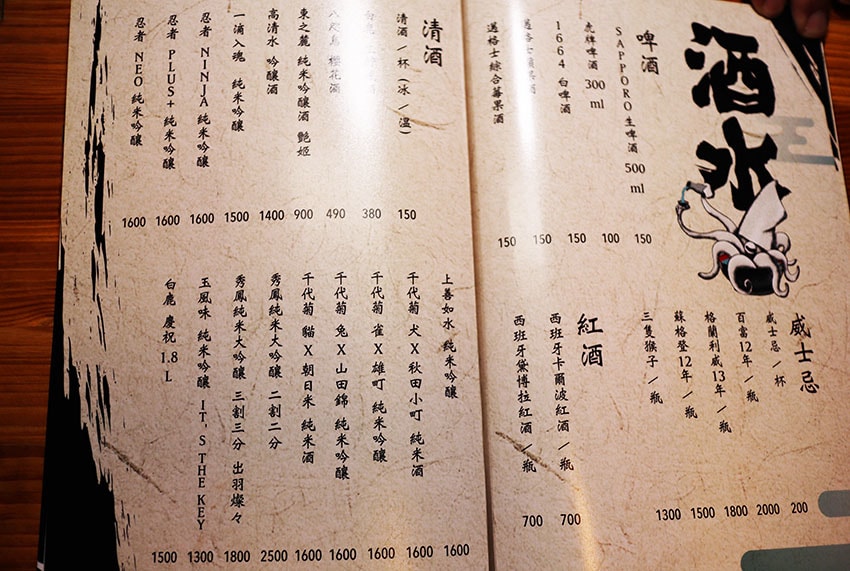 酒水
啤酒
SAPPORO生啤酒 500 ml 150
虎牌啤酒 300 ml 100
1664 白啤酒 150
邁格士 果酒 150
邁格士綜合莓果酒 150
威士忌
威士忌/杯 200
百富12年/瓶 2000
格蘭利威13年/瓶 1800
蘇格登12年/瓶 1500
三隻猴子/瓶 1300
紅酒
西班牙卡爾波紅酒/瓶 700
西班牙黛博拉紅酒/瓶 700
清酒
清酒/杯(冰/溫) 150
380
八咫烏 櫻花酒 490
東之麓 純米吟釀酒 艷姬 900
高清水 吟釀酒 1400
一滴入魂 純米吟釀 1500
忍者 NINJA 純米吟釀 1600
忍者 PLUS+ 純米吟釀 1600
忍者 NEO 純米吟釀 1600
上善如水 純米吟釀 1600
千代菊 犬X秋田小町 純米酒 1600
千代菊 雀X雄町 純米吟釀 1600
千代菊 兔X山田錦 純米吟釀 1600
千代菊 貓X朝日米 純米酒 1600
秀鳳純米大吟釀 二割二分 2500
秀鳳純米大吟釀 三割三分 出羽燦々 1800
玉風味 純米吟釀 IT'S THE KEY 1300
白鹿 慶祝 1.8 L 1500